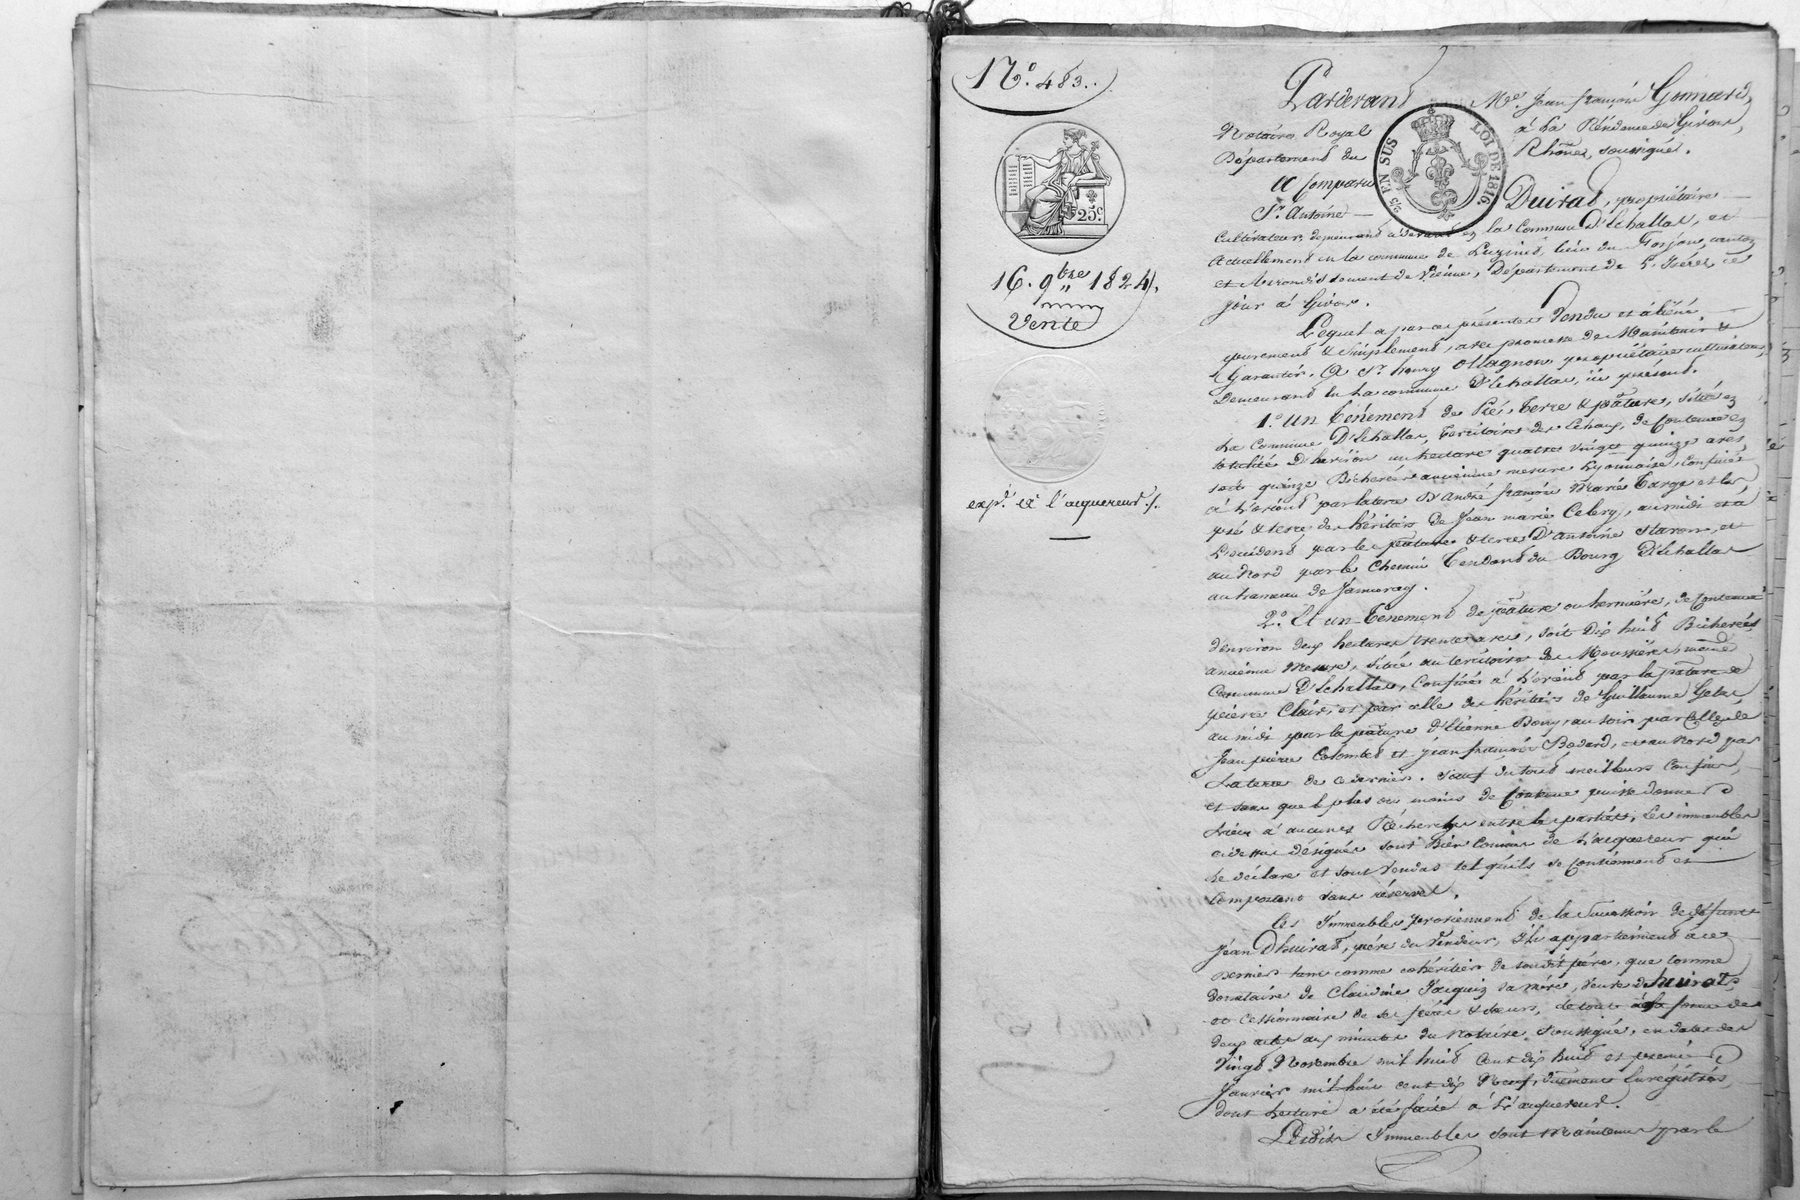 N.° 483..
25.c
16. 9.bre 1824.
Vente
exp.é à l'acquereur ./.
Pardevant M.e Jean françois Gonnard,
Notaire Royal à la Résidence de Givors,
Département du Rhône, soussigné.
5/5 EN SUS LOI DE 1816.
A Comparu
S.r Antoine Duirat, propriétaire
Cultivateur, demeurant la Commune D'Echallas, et
actuellement en la commune de Luzinet, lieu du canton
et arrondissement de Vienne, Département de L'Isère, ce
jour à Givors.
Lequel a par ces présentes Vendu et aliéné
purement & simplement, avec promesse de Maintenir &
Garantir, A S.r henry Ollagnon propriétaire cultivateur,
Demeurant en la commune D'Echallas, ici présent.
1.° Un Ténement de Pré, Terre & pâture, situé en
La Commune D'Echallas, territoire de Contenue en
totalité D'environ un hectare quatre vingt quinze ares,
soit quinze Bicherées ancienne mesure Lyonnaise, confiné
à L'orient par la terre D'André françois Marie et le
pré & terre des héritiers de Jean marie Celery, au midi et à
L'occident par les pâture & terres D'antoine et
au Nord par le Chemin Tendant du Bourg D'Echallas
au hameau de Jamoray.
2.° Et un Ténement de pâture ou hermière, de Contenue
d'environ deux hectares trente ares, soit Dix huit Bicherées
ancienne Mesure, situé au territoire des Moussières, même
Commune D'Echallas, Confiné à L'orient par la pâture de
pierre Clair, et par celle des héritiers de Guillaume
au midi par la pâture D'Etienne Bony, au soir par Celle de
Jean pierre Colombet et Jean françois Bodard, et au Nord par
La terre de ce dernier. Sauf du tout meilleurs Confins,
et sans que le plus ou moins de Contenue puisse donner
Lieu à aucunes Récherches entre les parties, Les immeubles
ci dessus désignés sont bien Connus de L'acquereur qui
Le déclare et sont Vendus tel qu'ils se Contiennent et
Comportent sans réserve.
Ces Immeubles proviennent de la Succession de défunt
Jean Dhuirat, père du Vendeur, Ils appartiennent à ce
Dernier tant comme cohéritier de soudit père, que comme
donataire de Claudine Jacquiz sa mère, Veuve dhuirat,
et Cessionnaire de ses frères & sœurs, le tout à la forme de
deux actes aux minutes du Notaire Soussigné, en dates des
Vingt Novembre mil huit Cent dix huit et premier
Janvier mil huit cent dix Neuf, dûement Enregistrés,
dont Lecture a été faite à L'acquereur.
Lesdits Immeubles sont Maintenus par le